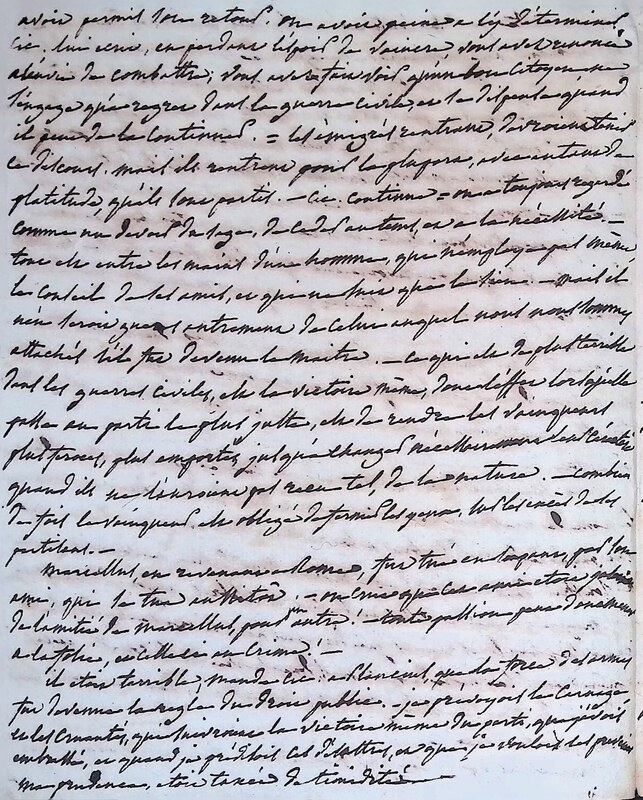 avoir permis son retour. on avoit peine a l'y déterminer
Cic. lui écrit, en perdant l'espoir de vaincre vous avez renoncé
a l'envie de combattre; vous avez fait voir qu'un bon Citoyen ne
s'engage qu'a regret dans la guerre civile, et se dispense quand
il peut de la continuer. = les émigrés rentrans, devroient tenir
ce discours. mais ils rentrent pour la plupart, avec autant de
platitude, qu'ils sont partis. — Cic. continue = on a toujours regardé
comme un devoir du sage, de céder au tems, et a la nécessité. —
tout est entre les mains d'un homme, qui n'employe pas même
le Conseil de ses amis, et qui ne suit que le sien. — mais il
n'en seroit guères autrement de Celui auquel nous nous sommes
attachés s'il fut devenu le maitre. — Ce qui est de plus terrible
dans les guerres civiles, est la victoire même, dont l'effet lorsqu'elle
passe au parti le plus juste, est de rendre les vainqueurs
plus féroces, plus emportés, jusqu'a changer nécessairement leur
quand ils ne l'auroient pas reçu tel, de la nature. — Combien
de fois le vainqueur est obligé de fermer les yeux, sur les excès de ses
partisans. —
Marcellus, en revenant a Rome, fut tué en par son
ami, qui se tua aussitôt. — on croit que cet ami étoit
de l'amitié de Marcellus, pour un autre! — toute passion peut donc mener
a la folie, et celle-ci au Crime! —
il étoit terrible, mande Cic. a Plancius, que la force des armes
fut devenue la regle du droit public. — je prévoyois le Carnage
et les Cruautés, qui suivroient la victoire même du parti, que j'avois
embrassé, et quand je prédisois ces désastres, et que je voulois les prévenir
ma prudence, étoit taxée de timidité. —